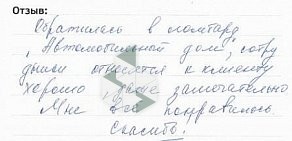 Отзыв:
Обратилась в ломбард
"Автомобильный дом", сотру
дники относятся к клиенту
хорошо, даже замечательно
Мне всё понравилось
Спасибо!